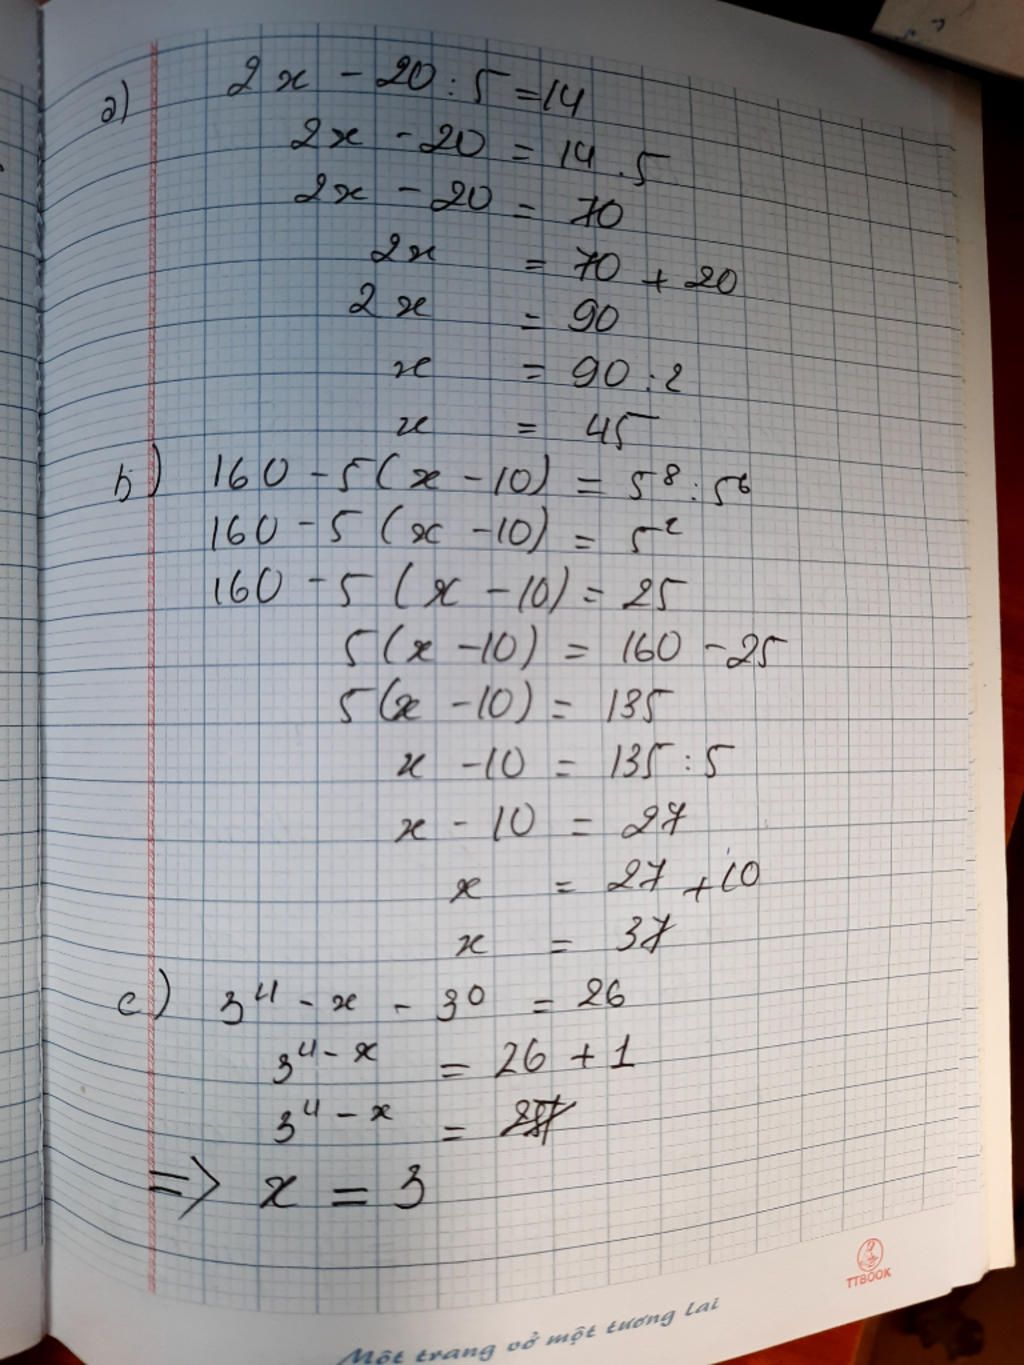 a) 2x - 20 : 5 = 14
2x - 20 = 14 . 5
2x - 20 = 70
2x = 70 + 20
2x = 90
x = 90 : 2
x = 45
b) 160 - 5(x - 10) = 5⁸ : 5⁶
160 - 5(x - 10) = 5²
160 - 5(x - 10) = 25
5(x - 10) = 160 - 25
5(x - 10) = 135
x - 10 = 135 : 5
x - 10 = 27
x = 27 + 10
x = 37
c) 3⁴ - x - 3⁰ = 26
3⁴⁻ˣ = 26 + 1
3⁴⁻ˣ =
=> x = 3
TTBOOK
Một trang vở một tương lai